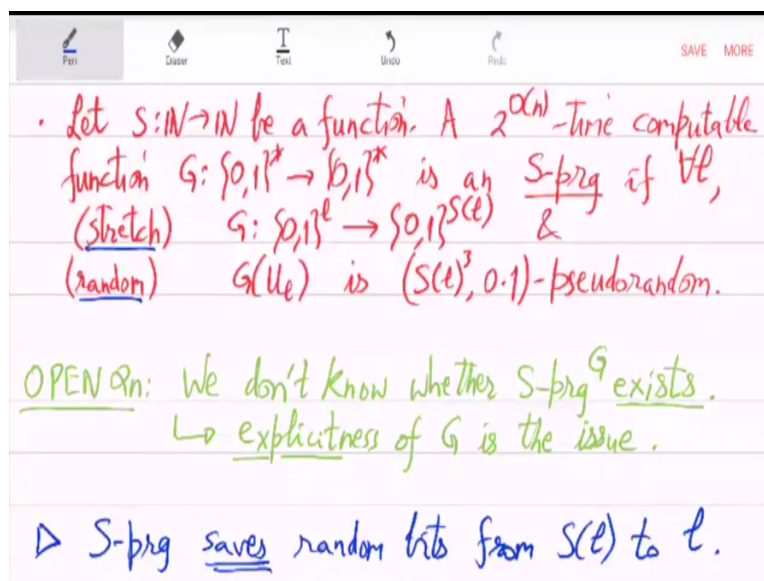 Pen Eraser Text Undo Redo SAVE MORE
· Let S:ℕ→ℕ be a function. A 2^{O(n)}-time computable
function G: {0,1}* → {0,1}* is an S-prg if ∀ℓ,
(stretch) G: {0,1}^ℓ → {0,1}^{S(ℓ)} &
(random) G(U_ℓ) is (S(ℓ)³, 0.1)-pseudorandom.
OPEN Qn: We don't know whether S-prg G exists.
↳ explicitness of G is the issue.
▷ S-prg saves random bits from S(ℓ) to ℓ.